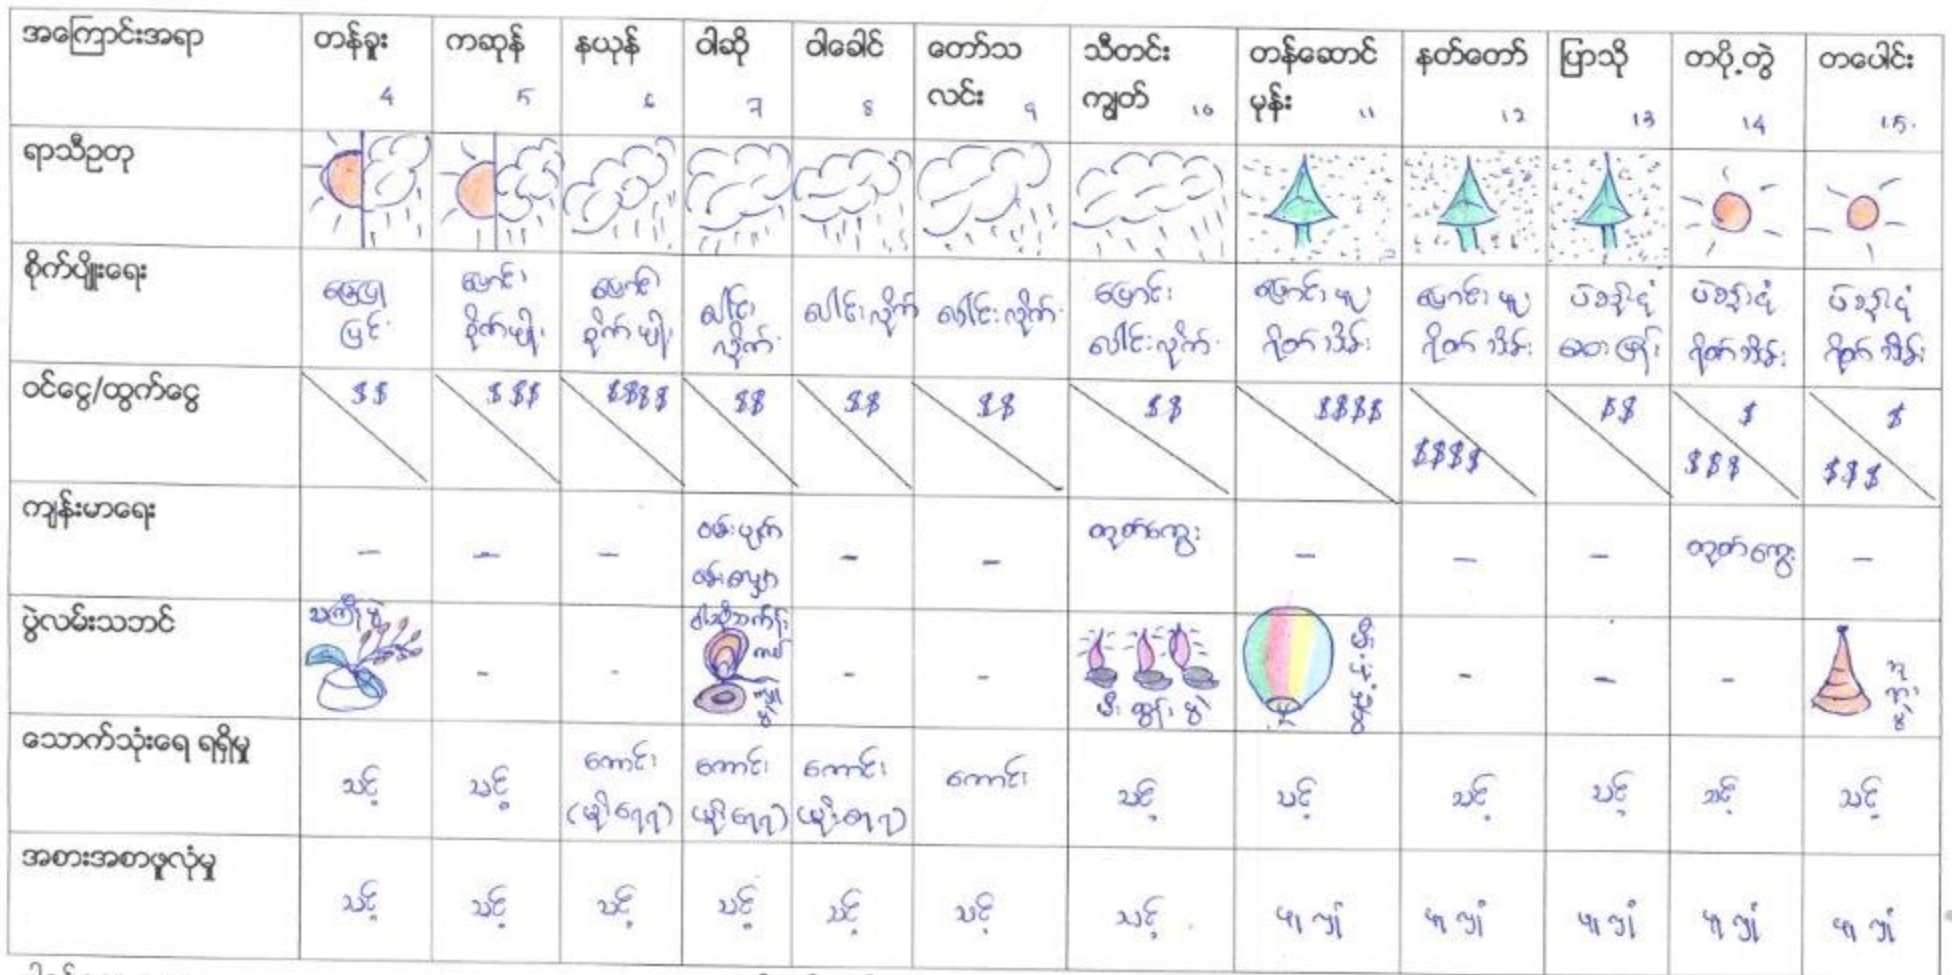 အကြောင်းအရာ
တန်ခူး 4
ကဆုန် 5
နယုန် 6
ဝါဆို 7
ဝါခေါင် 8
တော်သ
လင်း 9
သီတင်း
ကျွတ် 10
တန်ဆောင်
မုန်း 11
နတ်တော် 12
ပြာသို 13
တပို့တွဲ 14
တပေါင်း 15.
ရာသီဥတု
စိုက်ပျိုးရေး
မြေပြု
ပြင်
ပြောင်း
စိုက်ပျိုး
ပြောင်း
စိုက်ပျိုး
ပေါင်း
လိုက်
ပေါင်းလိုက်
ပေါင်းလိုက်
ပြောင်း
ပေါင်းလိုက်
ပြောင်း
ရိတ်သိမ်း
ပြောင်း
ရိတ်သိမ်း
ပဲစဉ်းငုံ
ပဲစဉ်းငုံ
ရိတ်သိမ်း
ပဲစဉ်းငုံ
ရိတ်သိမ်း
ဝင်ငွေ/ထွက်ငွေ
$$
$$$
$$$$
$$
$$
$$
$$
$$$$
$$$$
$$
$
$$$
$
$$$
ကျန်းမာရေး
-
-
-
ဝမ်းပျက်
ဝမ်းလျှော
-
-
တုတ်ကွေး
-
-
-
တုတ်ကွေး
-
ပွဲလမ်းသဘင်
သင်္ကြန်ပွဲ
-
-
ဝါဆိုသင်္ကန်း
ကပ်
ပွဲ
-
-
မီးထွန်းပွဲ
မီးပုံးပျံပွဲ
-
-
-
ဘု
ရား
ပွဲ
သောက်သုံးရေ ရရှိမှု
သင့်
သင့်
ကောင်း
(မိုးရေရ)
ကောင်း
(မိုးရေရ)
ကောင်း
(မိုးရေရ)
ကောင်း
သင့်
သင့်
သင့်
သင့်
သင့်
သင့်
အစားအစာဖူလုံမှု
သင့်
သင့်
သင့်
သင့်
သင့်
သင့်
သင့်
ဖူလုံ
ဖူလုံ
ဖူလုံ
ဖူလုံ
ဖူလုံ